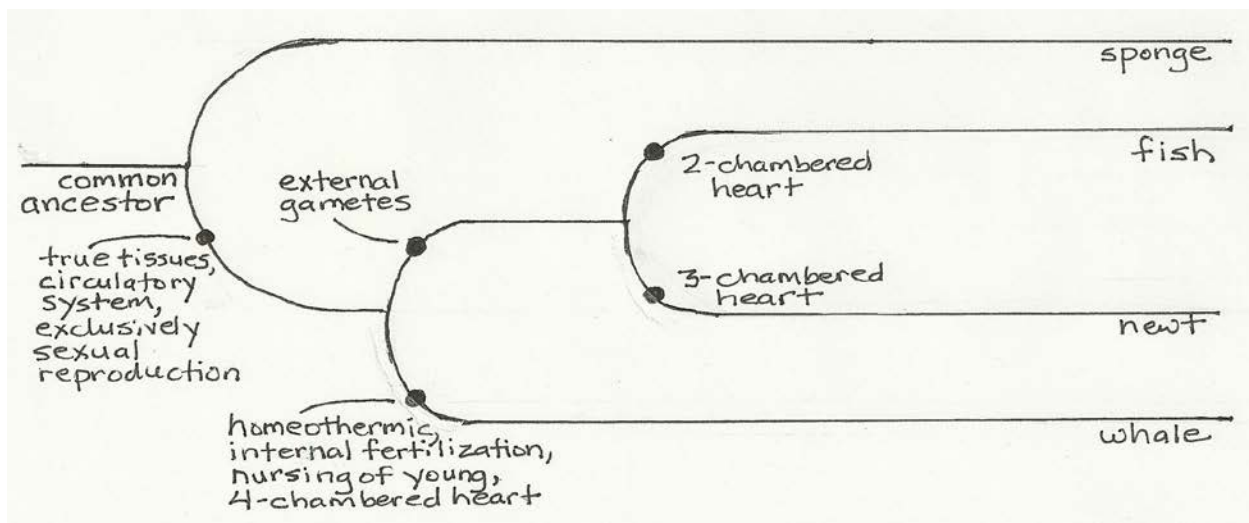 sponge
fish
2-chambered
heart
common
ancestor
external
gametes
true tissues,
circulatory
system,
exclusively
sexual
reproduction
3-chambered
heart
newt
homeothermic,
internal fertilization,
nursing of young,
4-chambered heart
whale